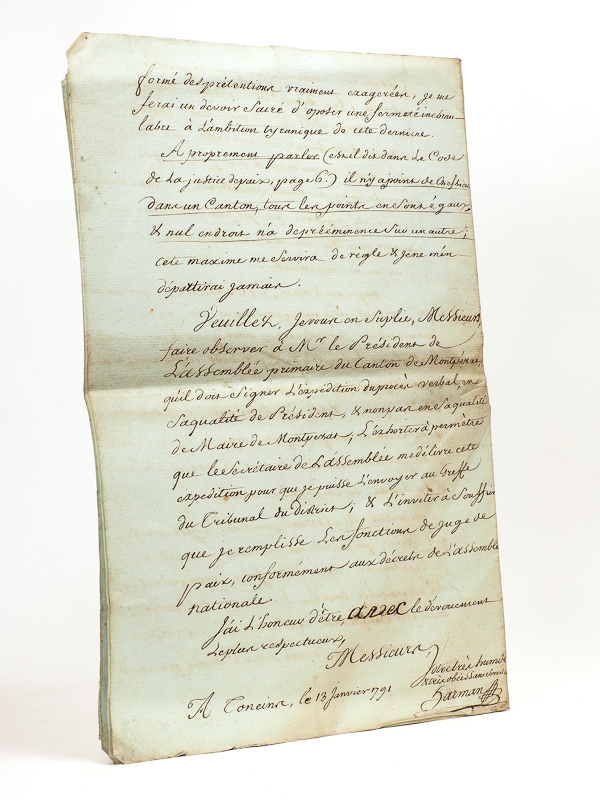 formé des prétentions vraiment exagérées, je me
ferai un devoir sacré d'oposer une fermeté inébran-
lable à l'ambition tyranique de cete derniere.
A proprement parler (est il dit dans le Code
de la justice de paix, page 6.) il n'y a point de Chef lieu
dans un Canton, tous les points en sont égaux,
& nul endroit n'a de prééminence sur un autre;
cete maxime me servira de règle & je ne m'en
départirai jamais.
Veuillez, je vous en suplie, Messieurs,
faire observer à Mr. le Président de
L'assemblée primaire du Canton de Montpézat,
qu'il doit signer l'expédition du procès verbal, en
sa qualité de Président, & non pas en sa qualité
de Maire de Montpezat; l'exhorter à permètre
que le secrétaire de l'assemblée me délivre cete
expédition pour que je puisse l'envoyer au Greffe
du Tribunal du district; & l'inviter à souffrir
que je remplisse les fonctions de juge de
paix, conformément aux décrets de l'assemblée
nationale.
J'ai l'honeur d'être, avec le dévouement
le plus respectueux,
Messieurs,
Votre très humble
& très obéissant serviteur
A Toneins, le 13 janvier 1791
Barman